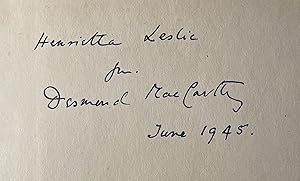 Henrietta Leslie
fm.
Desmond MacCarthy
June 1945.